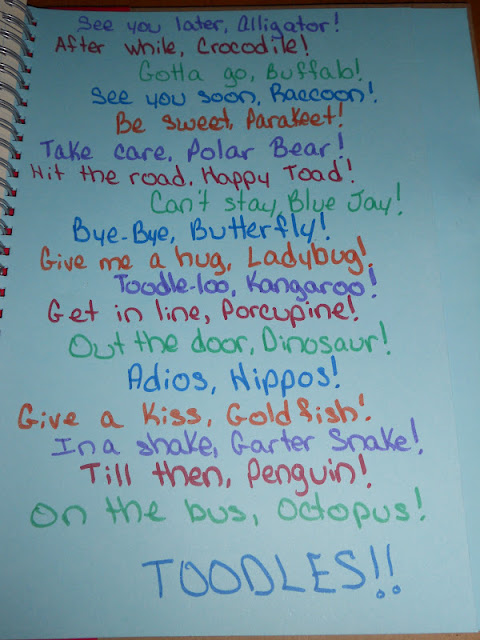 See you later, Alligator!
After while, Crocodile!
Gotta go, Buffalo!
See you soon, Raccoon!
Be sweet, Parakeet!
Take care, Polar Bear!
Hit the road, Happy Toad!
Can't stay, Blue Jay!
Bye-Bye, Butterfly!
Give me a hug, Ladybug!
Toodle-loo, Kangaroo!
Get in line, Porcupine!
Out the door, Dinosaur!
Adios, Hippos!
Give a Kiss, Goldfish!
In a shake, Garter Snake!
Till then, Penguin!
On the bus, Octopus!
TOODLES!!